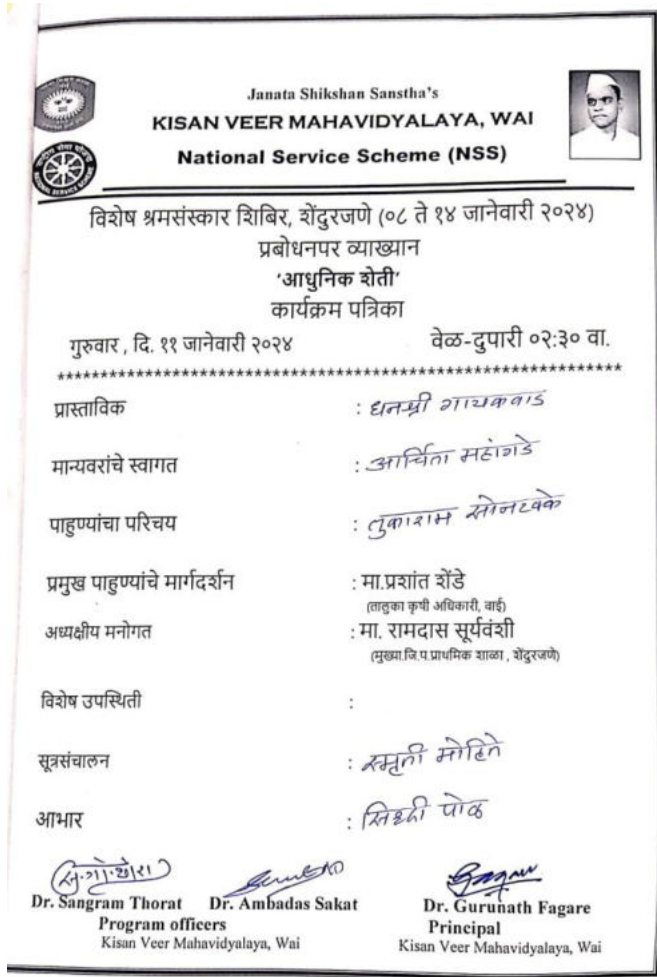 Janata Shikshan Sanstha's
KISAN VEER MAHAVIDYALAYA, WAI
National Service Scheme (NSS)
विशेष श्रमसंस्कार शिबिर, शेंदुरजणे (०८ ते १४ जानेवारी २०२४)
प्रबोधनपर व्याख्यान
'आधुनिक शेती'
कार्यक्रम पत्रिका
गुरुवार , दि. ११ जानेवारी २०२४ वेळ-दुपारी ०२:३० वा.
******************************************************************
प्रास्ताविक : धनश्री गायकवाड
मान्यवरांचे स्वागत : आर्चिता महांगडे
पाहुण्यांचा परिचय : तुकाराम सोनटक्के
प्रमुख पाहुण्यांचे मार्गदर्शन : मा.प्रशांत शेंडे
(तालुका कृषी अधिकारी, वाई)
अध्यक्षीय मनोगत : मा. रामदास सूर्यवंशी
(मुख्या.जि.प.प्राथमिक शाळा , शेंदुरजणे)
विशेष उपस्थिती :
सूत्रसंचालन : स्मृती मोहिते
आभार : सिध्दी पोळ
Dr. Sangram Thorat Dr. Ambadas Sakat Dr. Gurunath Fagare
Program officers Principal
Kisan Veer Mahavidyalaya, Wai Kisan Veer Mahavidyalaya, Wai